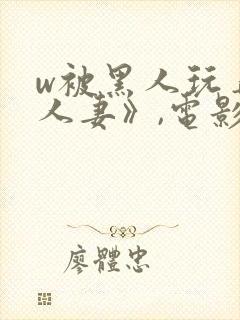 w被黑人玩
人妻》,電影
廖體忠